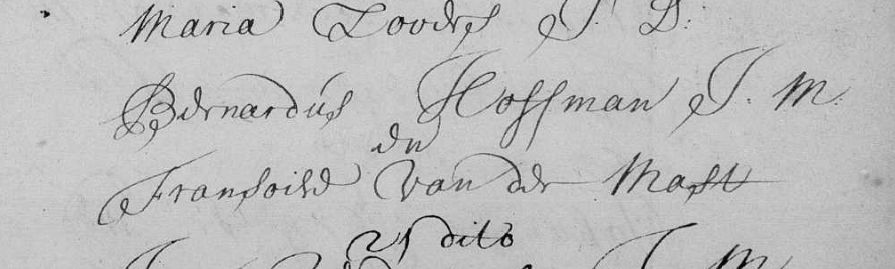 Maria Loodes J. D:
Bernardus Hoffman J. M:
en
Fransoise van der Mast
21 dito
J. M